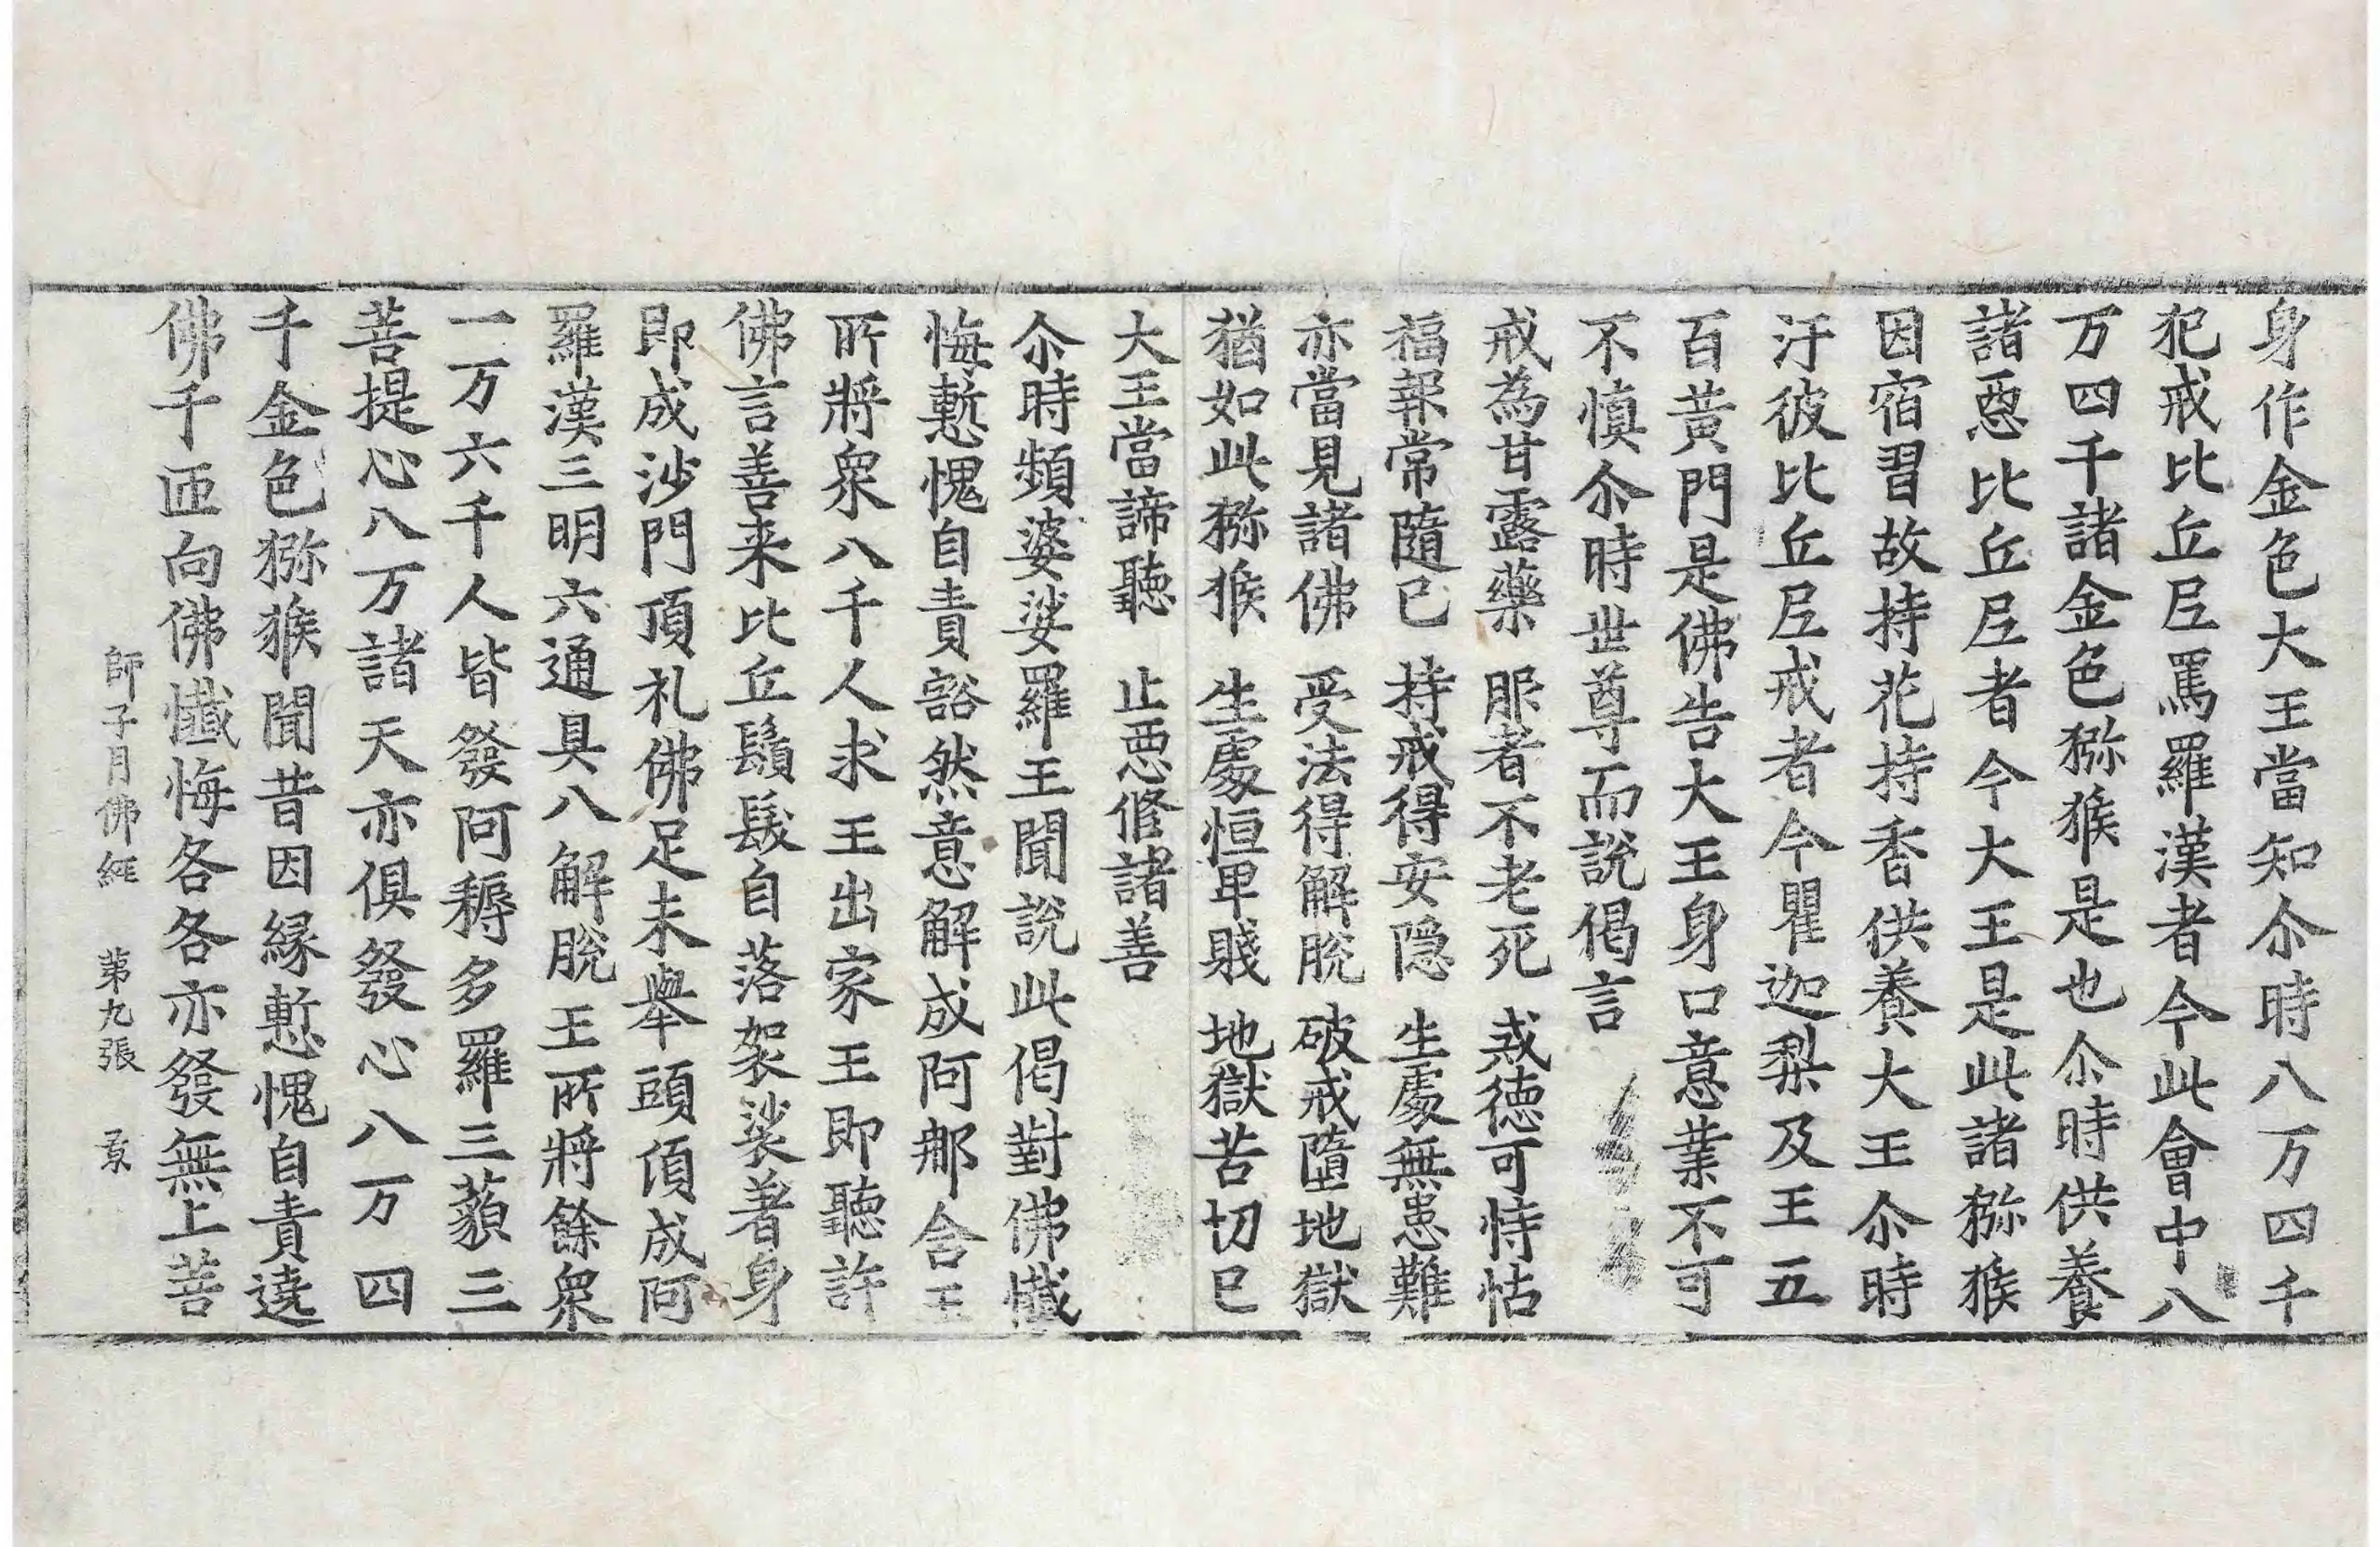 身作金色大王當知尒時八万四千
犯戒比丘𡰱罵羅漢者今此會中八
万四千諸金色猕猴是也尒時供養
諸惡比丘𡰱者今大王是此諸猕猴
因宿習故持花持香供養大王尒時
汙彼比丘𡰱戒者今瞿迦梨及王五
百黃門是佛告大王身口意業不可
不慎尒時世尊而說偈言
戒為甘露藥　服者不老死　戒德可恃怙
福報常隨已　持戒得安隱　生處無患難
亦當見諸佛　受法得解脫　破戒墮地獄
猶如此猕猴　生處恒卑賤　地獄苦切已
大王當諦聽　止惡脩諸善
尒時頻婆娑羅王聞說此偈對佛懺
悔慙愧自責豁然意解成阿那含王
所將衆八千人求王出家王即聽許
佛言善来比丘鬚髮自落袈裟著身
即成沙門頂礼佛足未舉頭頃成阿
羅漢三明六通具八解脫王所將餘衆
一万六千人皆發阿耨多羅三藐三
菩提心八万諸天亦俱發心八万四
千金色猕猴聞昔因緣慙愧自責遶
佛千匝向佛懺悔各各亦發無上菩
師子月佛經　第九張